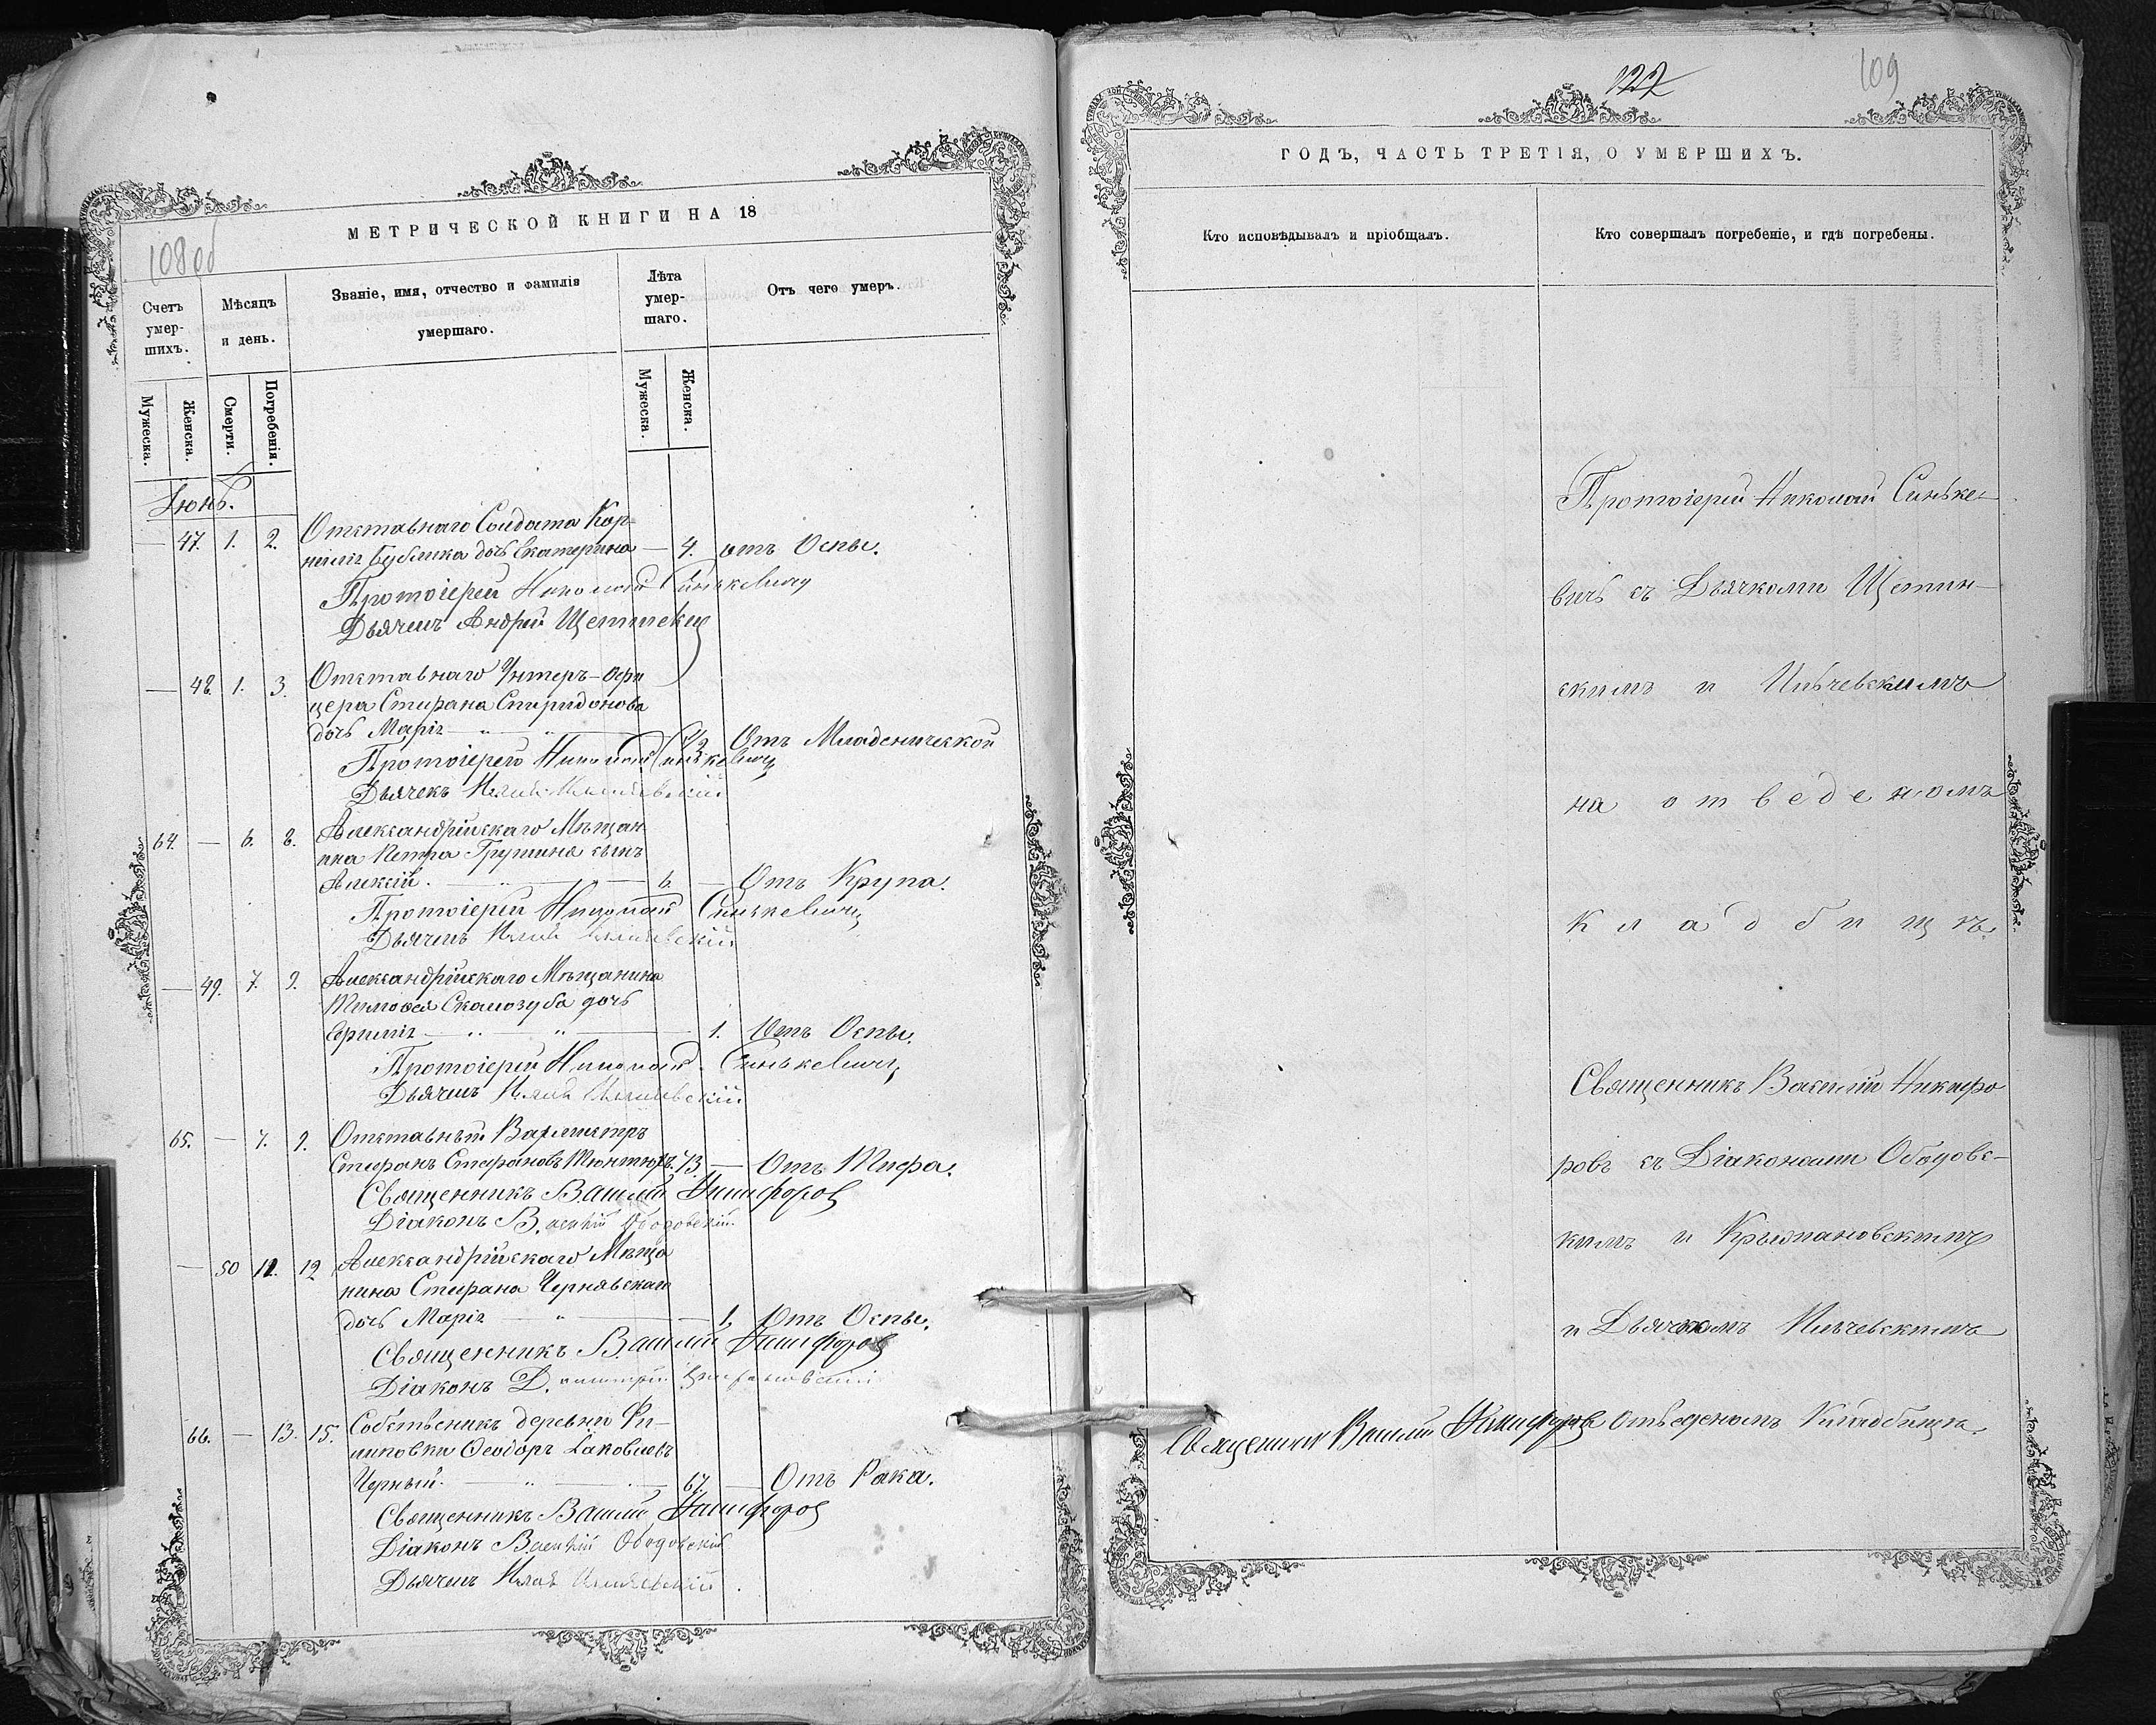 108 об
МЕТРИЧЕСКОЙ КНИГИ НА 18
Счетъ умер-шихъ.
Мѣсяцъ и день.
Званіе, имя, отчество и фамилія умершаго.
Лѣта умер-шаго.
Отъ чего умеръ.
Мужеска.
Женска.
Смерти.
Погребенія.
Мужеска.
Женска.
Іюнь.
Отставнаго Солдата Кор-
— 47. 1. 2. нилія Бублика дочь Екатерина — 4. отъ Оспы.
Протоіерей Николай Синькевичъ
Дьячекъ Андрей Щетинскій
— 48. 1. 3. Отставнаго Унтеръ-Офи
цера Стефана Спиридонова
дочь Марія — 1/2 Отъ Младенческой
Протоіерей Николай Синькевичъ
Дьячекъ Илія
64. — 6. 8. Александрійскаго Мѣщан
ина Петра Групина сынъ
Алексій. — 6. — Отъ Крупа.
Протоіерей Николай Синькевичъ
Дьячекъ Илія
— 49. 7. 9. Александрійскаго Мѣщанина
Тимофея Скалозуба дочь
— 1. Отъ Оспы.
Протоіерей Николай Синькевичъ
Дьячекъ Илія
65. — 7. 9. Отставный Вахмистръ
Стефанъ Стефановъ 73 — Отъ Тифа.
Священникъ Василій Никифоровъ
Діаконъ Василій Ободовскій
— 50 11. 12 Александрійскаго Мѣща
нина Стефана Чернявскаго
дочь Марія — 1. Отъ Оспы.
Священникъ Василій Никифоровъ
Діаконъ Димитрій Крыжановскій
66. — 13. 15. Собственникъ деревни Фи-
липовки Ѳеодоръ Іаковлевъ
Черный. — 67. — Отъ Рака.
Священникъ Василій Никифоровъ
Діаконъ Василій Ободовскій
Дьячекъ Илія
127
109
ГОДЪ, ЧАСТЬ ТРЕТІЯ, О УМЕРШИХЪ.
Кто исповѣдывалъ и пріобщалъ.
Кто совершалъ погребеніе, и гдѣ погребены.
Протоіерей Николай Синьке-
вичъ съ Дьячками Щетин-
скимъ и
на отведеномъ
кладбищѣ
Священникъ Василій Никифо
ровъ съ Діаконами Ободовс-
кимъ и Крыжановскимъ
и Дьячкомъ
Священникъ Василій Никифоровъ отведеномъ Кладбищѣ.